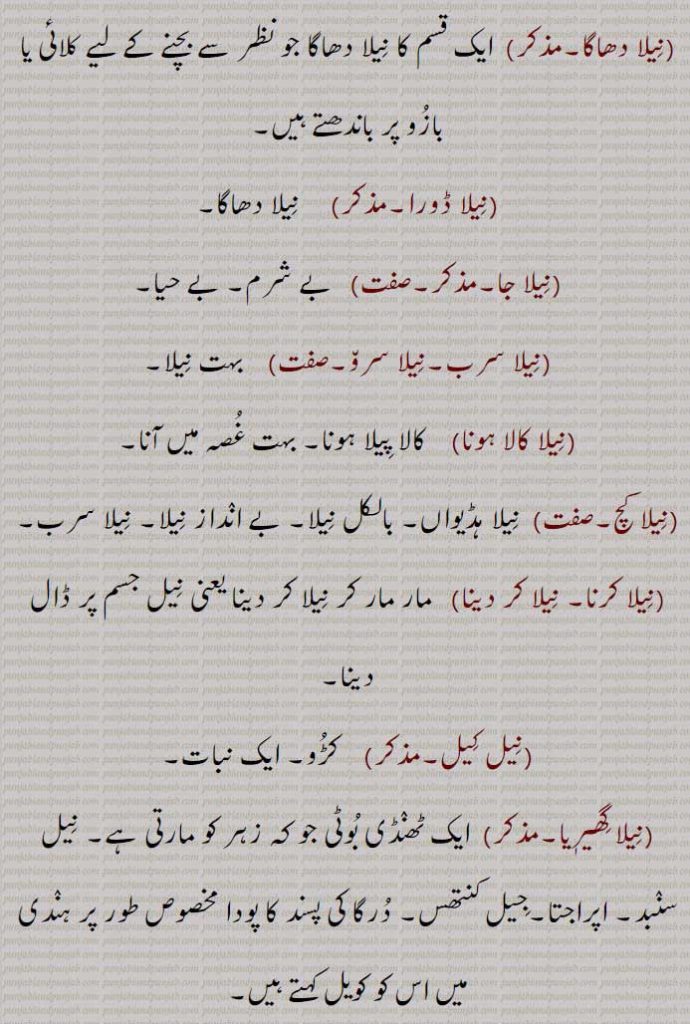 (نِیلا دھاگا۔مذکر) ایک قسم کا نِیلا دھاگا جو نظر سے بچنے کے لیے کلائی یا
بازُو پر باندھتے ہیں۔
(نِیلا ڈورا۔مذکر) نِیلا دھاگا۔
(نِیلا جا۔مذکر۔صفت) بے شرم۔ بے حیا۔
(نِیلا سرب۔نِیلا سروّ۔صفت) بہت نِیلا۔
(نِیلا کالا ہونا) کالا پِیلا ہونا۔ بہت غُصہ میں آنا۔
(نِیلا کچ۔صفت) نِیلا ہڈیواں۔ بالکل نِیلا۔ بے انْداز نِیلا۔ نِیلا سرب۔
(نِیلا کرنا۔ نِیلا کر دینا) مار مار کر نِیلا کر دینا یعنی نِیل جسم پر ڈال
دینا۔
(نِیل کِیل۔مذکر) کڑُو۔ ایک نبات۔
(نِیلا گھِیرِیا۔مذکر) ایک ٹھنْڈی بُوٹی جو کہ زہر کو مارتی ہے۔ نِیل
سنْبد۔ اپراجتا۔جِیل کنتھس۔ دُرگا کی پسند کا پودا مخصوص طور پر ہنْدی
میں اس کو کویل کہتے ہیں۔